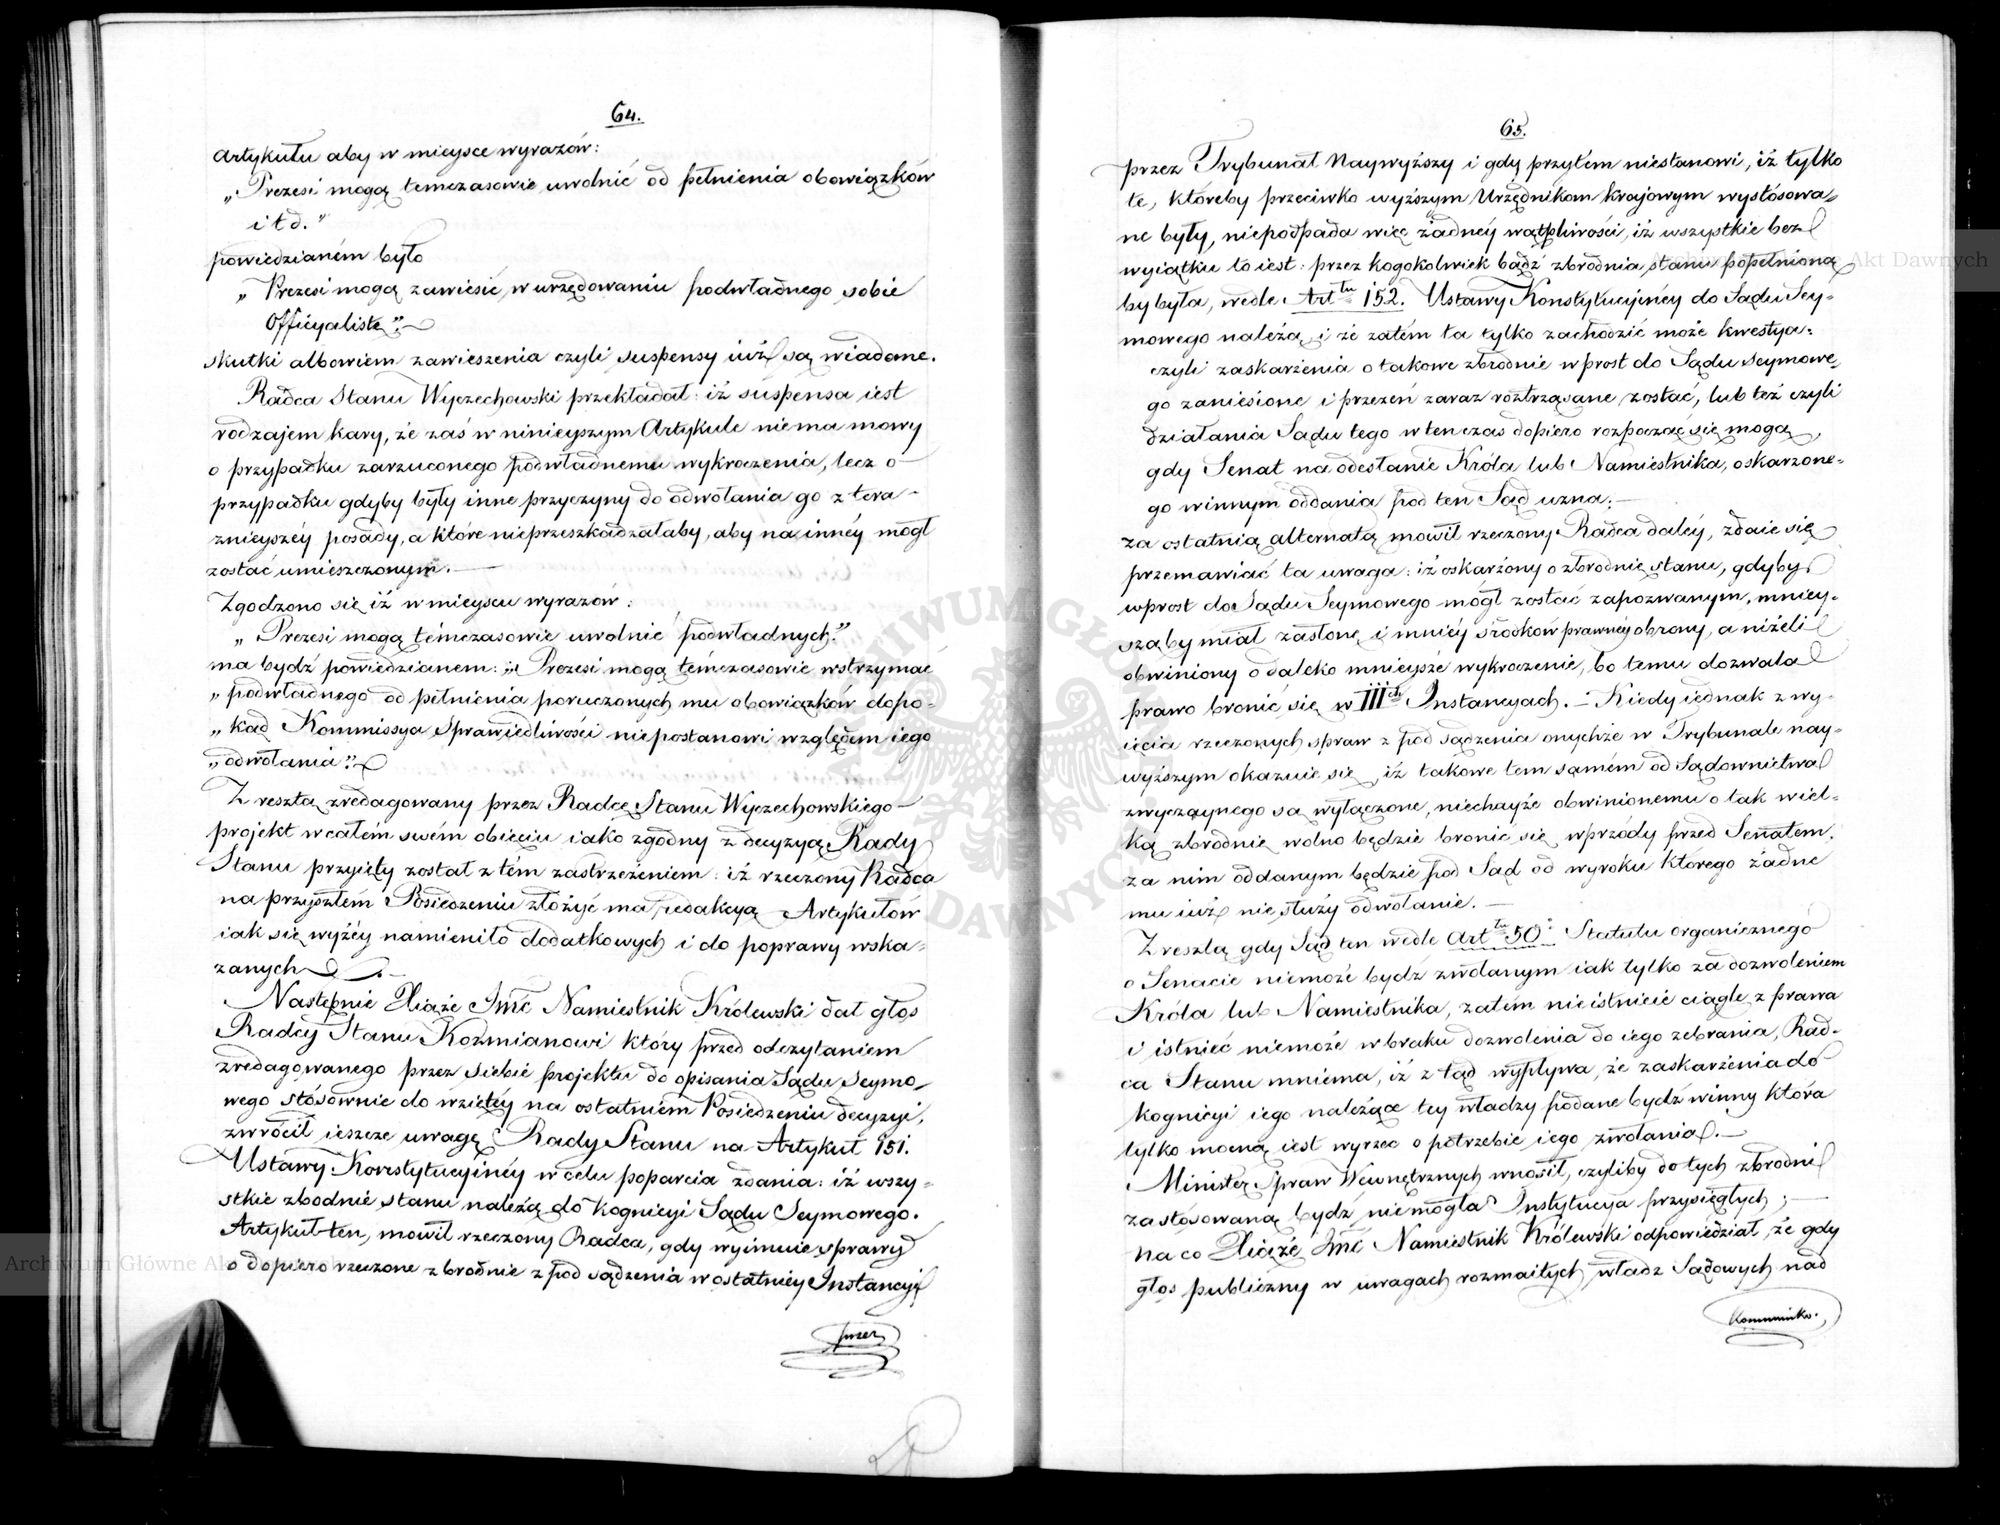 64.
Artykułu aby w mieysce wyrazów:
„Prezesi mogą temczasowie uwolnić od pełnienia obowiązków
i t d."
powiedzianém było
„Prezesi mogą zawiesić w urzędowaniu podwładnego sobie
Officyalistę".
skutki albowiem zawieszenia czyli suspensy iuż są wiadome.
Radca Stanu Wyczechowski przekładał: iż suspensa iest
rodzajem kary, że zaś w ninieyszym Artykule niema mowy
o przypadku zarzuconego podwładnemu wykroczenia, lecz o
przypadku gdyby były inne przyczyny do odwołania go z tera-
znieyszéy posady, a które nieprzeszkadzałaby, aby na innéy mógł
zostać umieszczonym.
Zgodzono się iż w mieyscu wyrazów:
„Prezesi mogą témczasowie uwolnić podwładnych"
ma bydź powiedzianem: „Prezesi mogą témczasowie wstrzymać
„podwładnego od pełnienia poruczonych mu obowiązków dopo-
„kąd Kommissya Sprawiedliwości niepostanowi względem iego
„odwołania".
Z resztą zredagowany przez Radcę Stanu Wyczechowskiego
projekt w całém swém obięciu iako zgodny z decyzyą Rady
Stanu przyięty został z tém zastrzeżeniem: iż rzeczony Radca
na przyszłém Posiedzeniu złożyć ma redakcyą Artykułów
iak się wyżéy namieniło dodatkowych i do poprawy wska-
zanych.
Następnie Xiąże Jmć Namiestnik Królewski dał głos
Radcy Stanu Kozmianowi który przed odczytaniem
zredagowanego przez siebie projektu do opisania Sądu Seymo-
wego stósownie do wziętéy na ostatniem Posiedzeniu decyzyi,
zwrócił ieszcze uwagę Rady Stanu na Artykuł 151.
Ustawy Konstytucyinéy w celu poparcia zdania: iż wszy-
stkie zbodnie stanu należą do kognicyi Sądu Seymowego.
Artykuł ten, mówił rzeczony Radca, gdy wyimuie sprawy
o dopiero rzeczone zbrodnie z pod sądzenia w ostatniéy Instancyi
przez
65.
przez Trybunał Naywyższy i gdy przytem niestanowi, iż tylko
te, któreby przeciwko wyższym Urzędnikom krajowym wystósowa-
ne były, niepodpada więc żadnéy wątpliwości, iż wszystkie bez
wyiątku to iest: przez kogokolwiek bądź zbrodnia stanu popełnioną
by była, wedle Arttu 152. Ustawy Konstytucyinéy do Sądu Sey-
mowego należą, i że zatém ta tylko zachodzić może kwestya:
czyli zaskarżenia o takowe zbrodnie wprost do Sądu Seymowe-
go zaniesione i przezeń zaraz roztrząsane zostać, lub też czyli
działania Sądu tego w ten czas dopiero rozpocząć się mogą,
gdy Senat na odesłanie Króla lub Namiestnika, oskarzone-
go winnym oddania pod ten Sąd uzna.
za ostatnią alternatą mówił rzeczony Radca daléy, zdaie się
przemawiać ta uwaga: iż oskarżony o zbrodnię stanu, gdyby
wprost do Sądu Seymowego mógł zostać zapozwanym, mniey-
szą by miał zasłonę i mniéy środków prawnéy obrony, a niżeli
obwiniony o daleko mnieysze wykroczenie, bo temu dozwala
prawo bronić się w IIIch Instancyach. – Kiedy iednak z wy-
ięcia rzeczonych spraw z pod sądzenia onychże w Trybunale nay-
wyższym okazuie się, iż takowe tem samém od Sądownictwa
zwyczaynego są wyłączone, niechayże obwinionemu o tak wiel-
ką zbrodnię wolno będzie bronić się wprzódy przed Senatem,
za nim oddanym będzie pod Sąd od wyroku którego żadne
mu iuż nie służy odwołanie.
Z resztą gdy Sąd ten wedle Arttu 50o Statutu organicznego
o Senacie niemoże bydź zwołanym iak tylko za dozwoleniem
Króla lub Namiestnika, zatém nieistnieie ciągle z prawa
i istnieć niemoże w braku dozwolenia do iego zebrania, Rad-
ca Stanu mniema, iż z tąd wypływa, że zaskarżenia do
kognicyi iego należące tey władzy podane bydź winny która
tylko mocną iest wyrzec o potrzebie iego zwołania.
Minister Spraw Wewnętrznych wnosił, czyliby do tych zbrodni
zastósowaną bydź niemogła Instytucya przysięgłych;
na co Xiąże Jmć Namiestnik Królewski odpowiedział, że gdy
głos publiczny w uwagach rozmaitych władz Sądowych nad
Kommuniko.
Archiwum Główne Akt Dawnych
ARCHIWUM GŁÓWNE AKT DAWNYCH